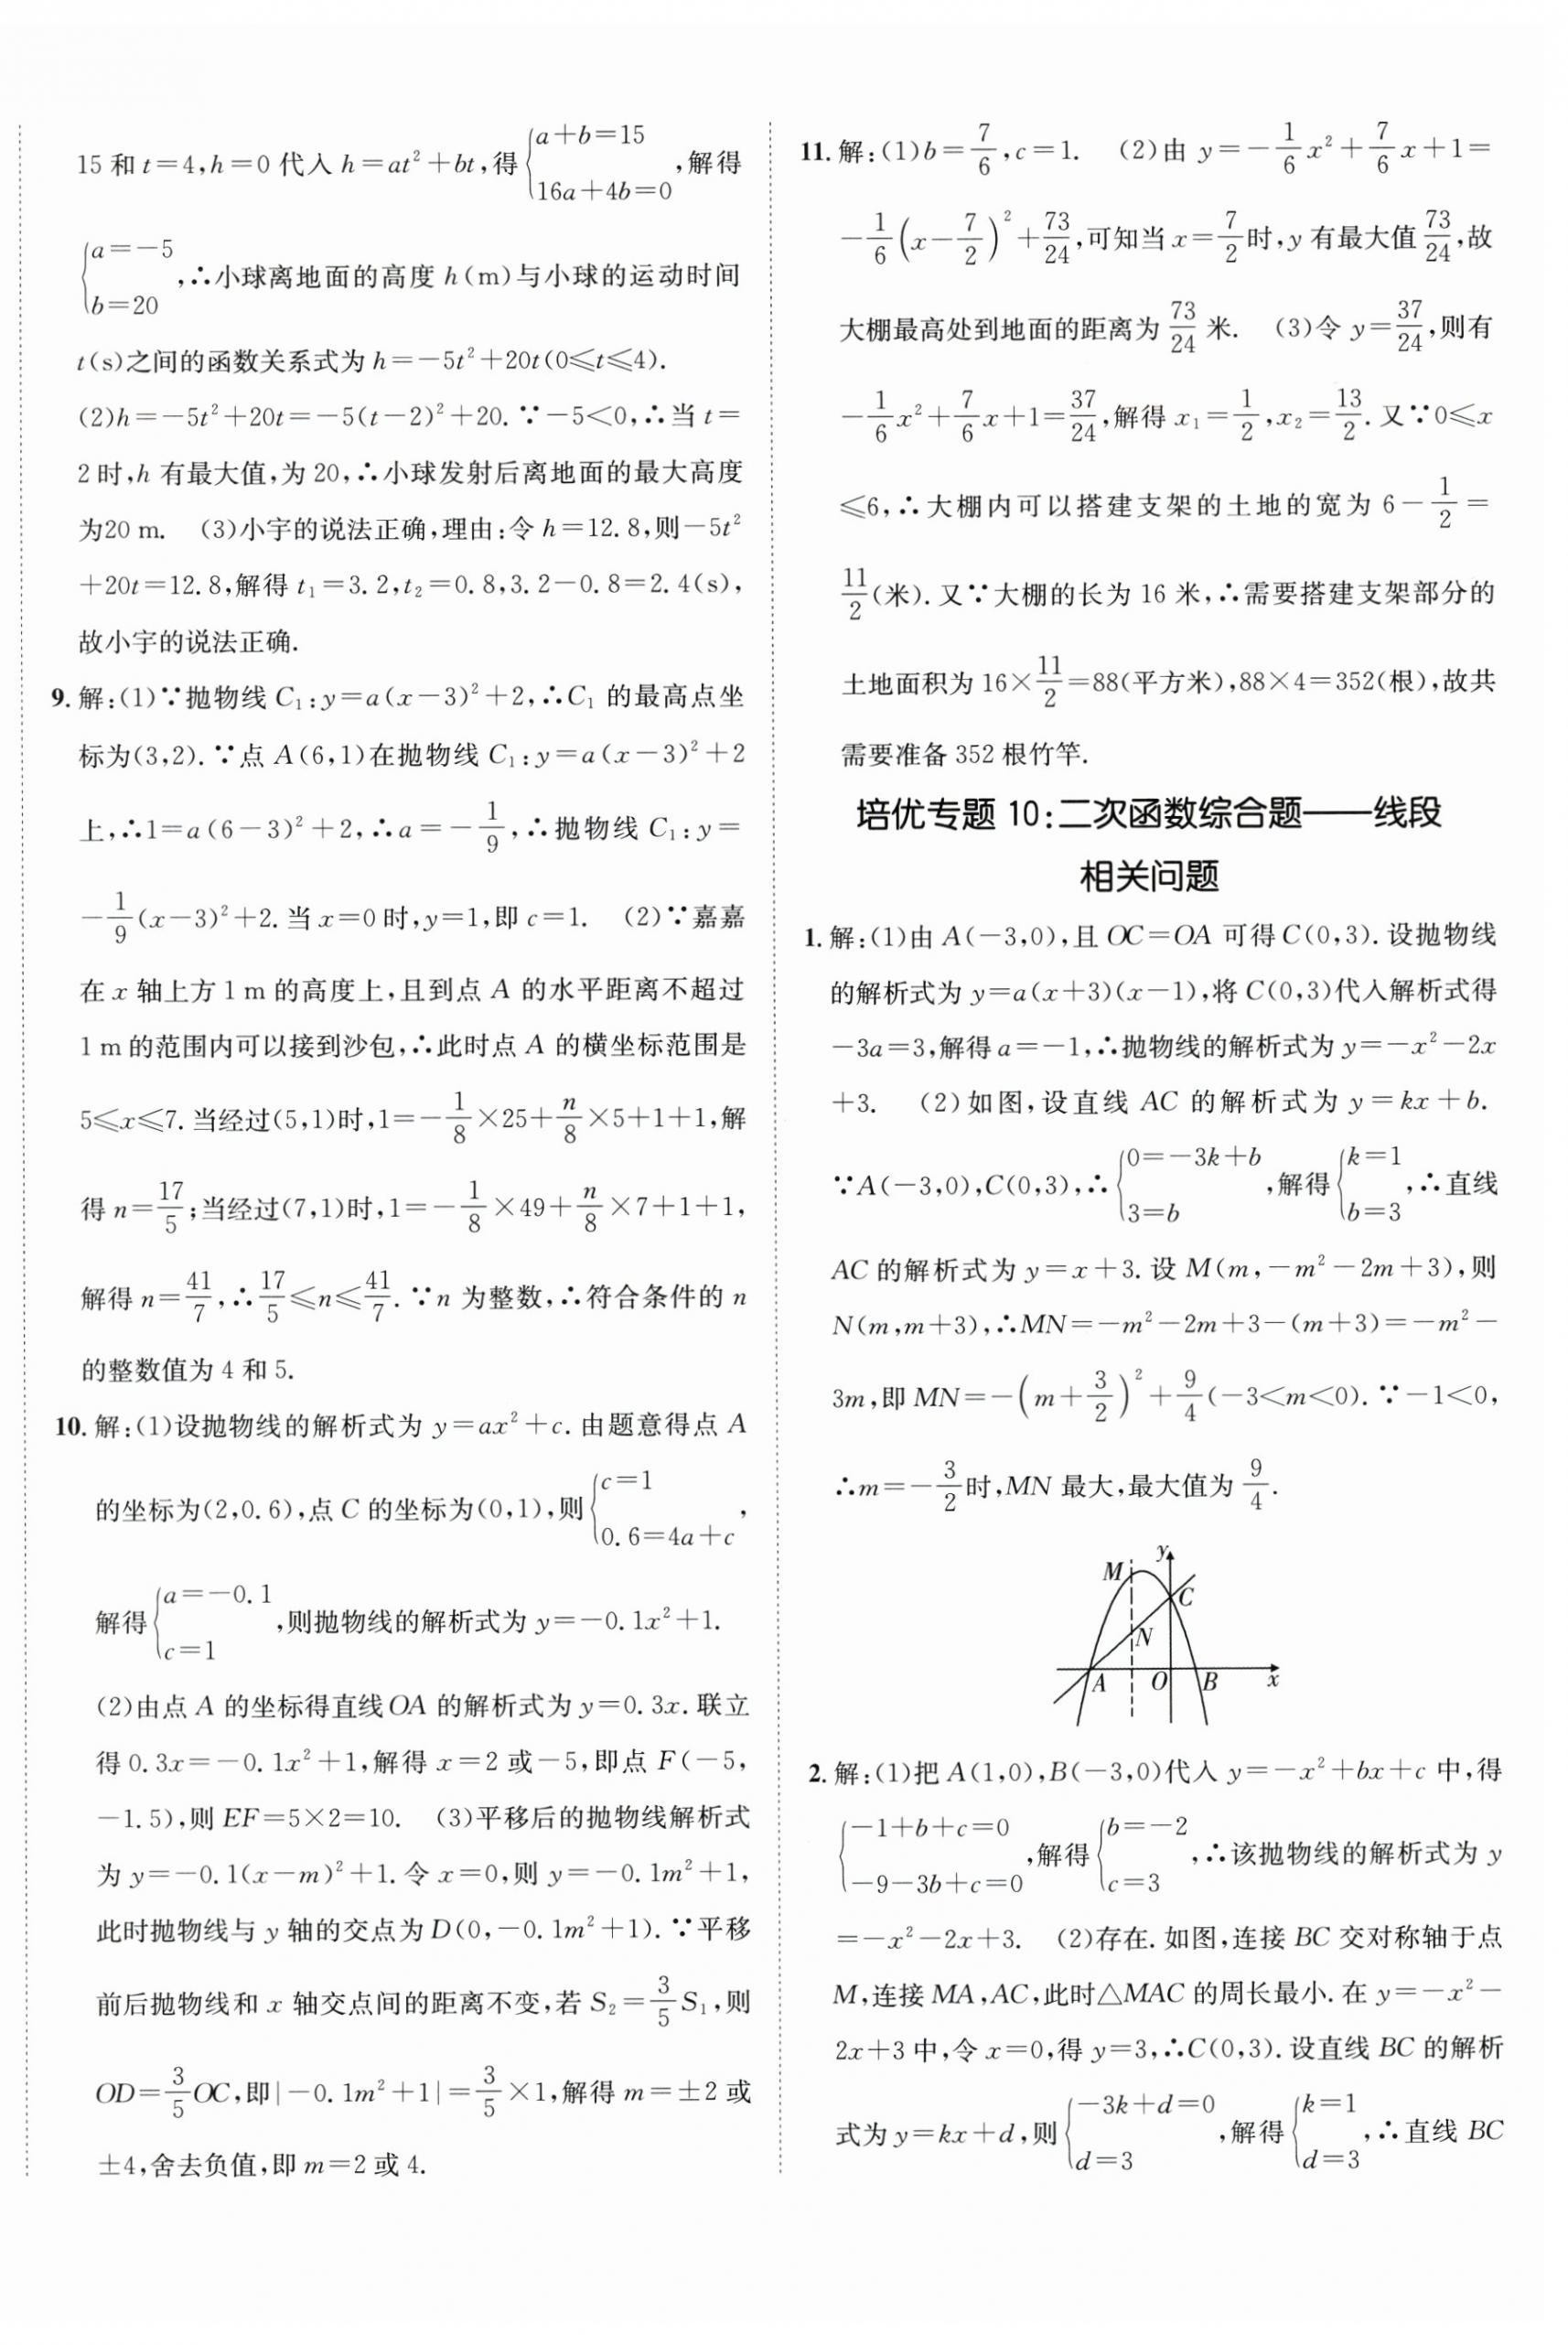 15 和 t=4,h=0 代入 h=at²+bt,得{a+b=15, 16a+4b=0,解得
{a=-5, b=20,∴小球离地面的高度 h(m)与小球的运动时间
t(s)之间的函数关系式为 h=-5t²+20t(0≤t≤4).
(2)h=-5t²+20t=-5(t-2)²+20.∵-5<0,∴当 t=
2 时,h 有最大值,为 20,∴小球发射后离地面的最大高度
为20 m. (3)小宇的说法正确,理由:令 h=12.8,则-5t²
+20t=12.8,解得 t₁=3.2,t₂=0.8,3.2-0.8=2.4(s),
故小宇的说法正确.
9. 解:(1)∵抛物线 C₁:y=a(x-3)²+2,∴C₁ 的最高点坐
标为(3,2).∵点 A(6,1)在抛物线 C₁:y=a(x-3)²+2
上,∴1=a(6-3)²+2,∴a=-1/9,∴抛物线 C₁:y=
-1/9(x-3)²+2.当 x=0 时,y=1,即 c=1. (2)∵嘉嘉
在 x 轴上方 1 m 的高度上,且到点 A 的水平距离不超过
1 m 的范围内可以接到沙包,∴此时点 A 的横坐标范围是
5≤x≤7.当经过(5,1)时,1=-1/8×25+n/8×5+1+1,解
得 n=17/5;当经过(7,1)时,1=-1/8×49+n/8×7+1+1,
解得 n=41/7,∴17/5≤n≤41/7.∵n 为整数,∴符合条件的 n
的整数值为 4 和 5.
10. 解:(1)设抛物线的解析式为 y=ax²+c.由题意得点 A
的坐标为(2,0.6),点 C 的坐标为(0,1),则{c=1, 0.6=4a+c,
解得{a=-0.1, c=1,则抛物线的解析式为 y=-0.1x²+1.
(2)由点 A 的坐标得直线OA 的解析式为 y=0.3x.联立
得 0.3x=-0.1x²+1,解得 x=2 或-5,即点 F(-5,
-1.5),则 EF=5×2=10. (3)平移后的抛物线解析式
为 y=-0.1(x-m)²+1.令 x=0,则 y=-0.1m²+1,
此时抛物线与 y 轴的交点为 D(0,-0.1m²+1).∵平移
前后抛物线和 x 轴交点间的距离不变,若 S₂=3/5S₁,则
OD=3/5OC,即|-0.1m²+1|=3/5×1,解得 m=±2 或
±4,舍去负值,即 m=2 或 4.
11. 解:(1)b=7/6,c=1. (2)由 y=-1/6x²+7/6x+1=
-1/6(x-7/2)²+73/24,可知当 x=7/2时,y 有最大值73/24,故
大棚最高处到地面的距离为73/24米. (3)令 y=37/24,则有
-1/6x²+7/6x+1=37/24,解得 x₁=1/2,x₂=13/2.又∵0≤x
≤6,∴大棚内可以搭建支架的土地的宽为 6-1/2=
11/2(米).又∵大棚的长为 16 米,∴需要搭建支架部分的
土地面积为 16×11/2=88(平方米),88×4=352(根),故共
需要准备 352 根竹竿.
培优专题 10:二次函数综合题——线段
相关问题
1. 解:(1)由 A(-3,0),且 OC=OA 可得 C(0,3).设抛物线
的解析式为 y=a(x+3)(x-1),将 C(0,3)代入解析式得
-3a=3,解得 a=-1,∴抛物线的解析式为 y=-x²-2x
+3. (2)如图,设直线 AC 的解析式为 y=kx+b.
∵A(-3,0),C(0,3),∴{0=-3k+b, 3=b,解得{k=1, b=3,∴直线
AC 的解析式为 y=x+3.设 M(m,-m²-2m+3),则
N(m,m+3),∴MN=-m²-2m+3-(m+3)=-m²-
3m,即 MN=-(m+3/2)²+9/4(-3<m<0).∵-1<0,
∴m=-3/2时,MN 最大,最大值为9/4.
y
M
C
N
A
O
B
x
2. 解:(1)把 A(1,0),B(-3,0)代入 y=-x²+bx+c 中,得
{-1+b+c=0, -9-3b+c=0,解得{b=-2, c=3,∴该抛物线的解析式为 y
=-x²-2x+3. (2)存在.如图,连接 BC 交对称轴于点
M,连接 MA,AC,此时△MAC 的周长最小.在 y=-x²-
2x+3 中,令 x=0,得 y=3,∴C(0,3).设直线 BC 的解析
式为 y=kx+d,则{-3k+d=0, d=3,解得{k=1, d=3,∴直线 BC